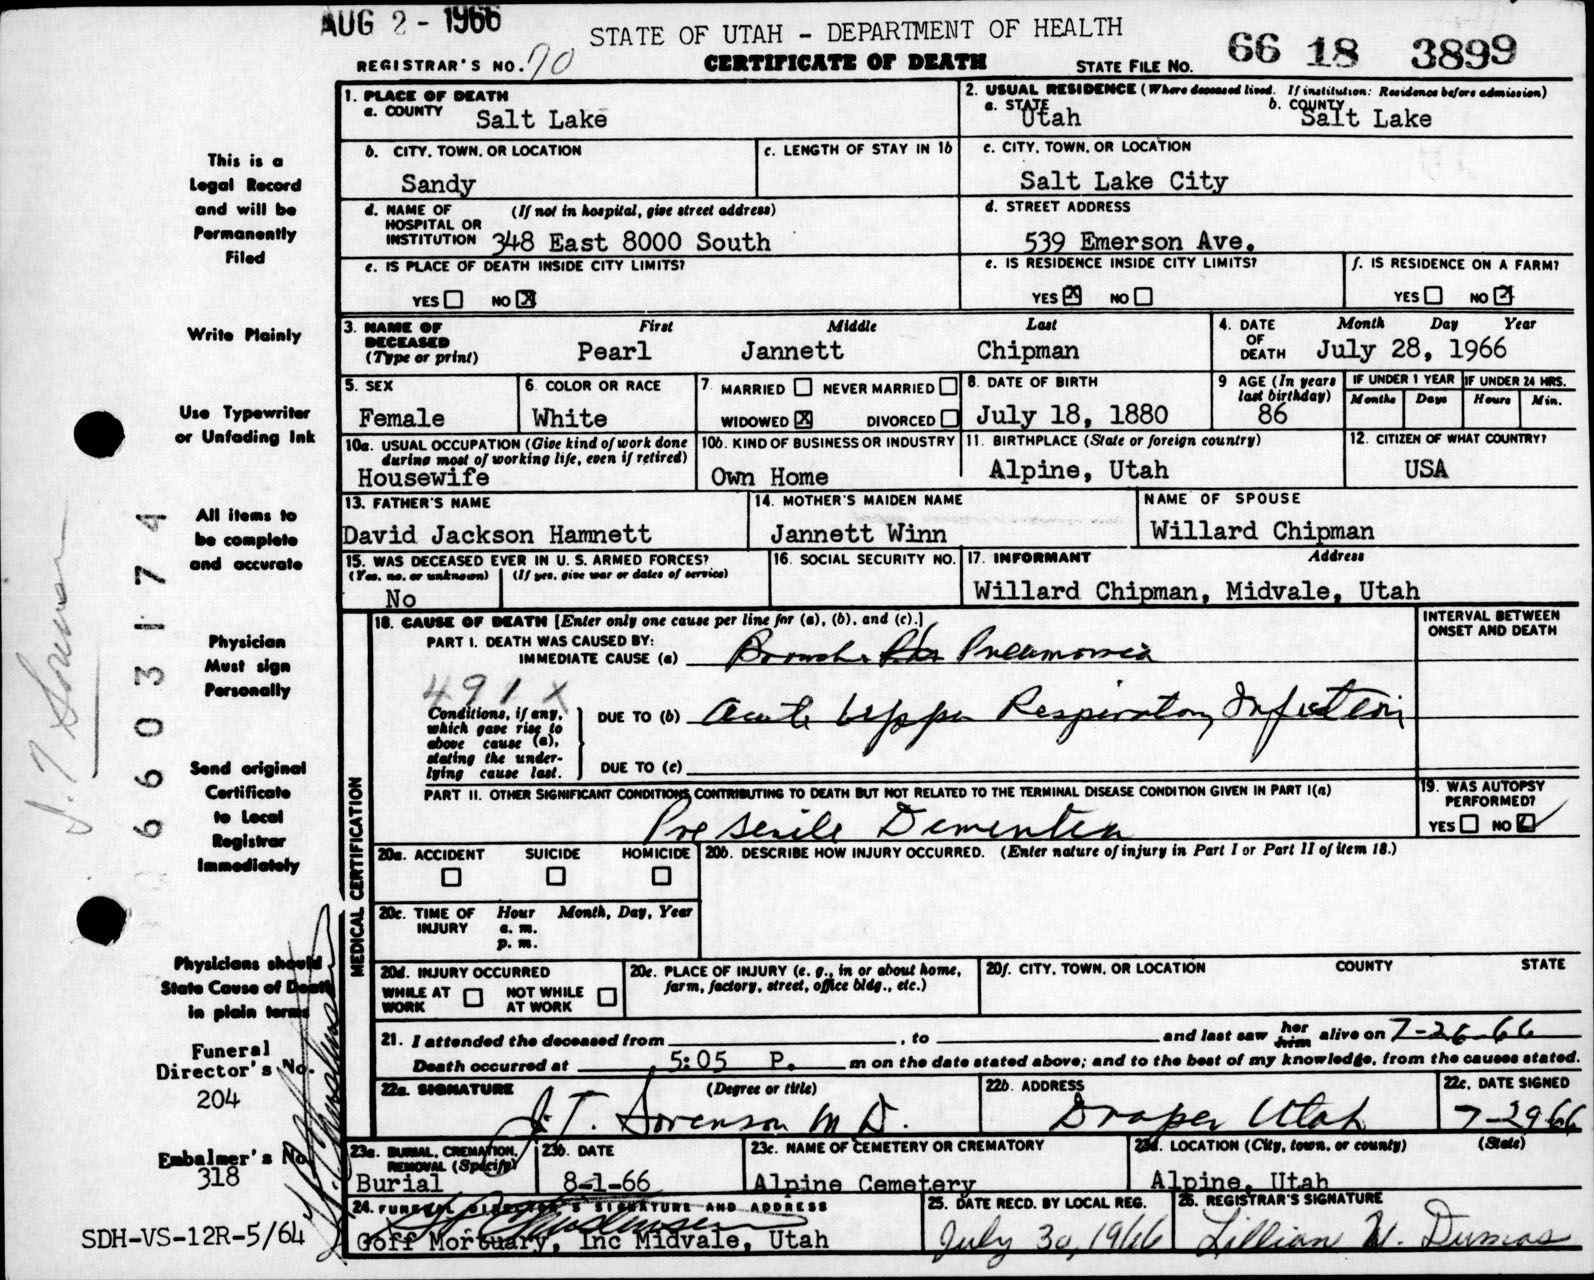 AUG 2 - 1966
STATE OF UTAH - DEPARTMENT OF HEALTH
REGISTRAR'S NO. 70 CERTIFICATE OF DEATH STATE FILE NO. 66 18 3899
1. PLACE OF DEATH
a. COUNTY Salt Lake
2. USUAL RESIDENCE (Where deceased lived. If institution: Residence before admission)
a. STATE Utah b. COUNTY Salt Lake
b. CITY, TOWN, OR LOCATION Sandy
c. LENGTH OF STAY IN 1b
c. CITY, TOWN, OR LOCATION Salt Lake City
d. NAME OF HOSPITAL OR INSTITUTION (If not in hospital, give street address) 348 East 8000 South
d. STREET ADDRESS 539 Emerson Ave.
e. IS PLACE OF DEATH INSIDE CITY LIMITS?
YES NO X
e. IS RESIDENCE INSIDE CITY LIMITS?
YES X NO
f. IS RESIDENCE ON A FARM?
YES NO X
3. NAME OF DECEASED (Type or print) First Middle Last
Pearl Jannett Chipman
4. DATE OF DEATH Month Day Year
July 28, 1966
5. SEX Female
6. COLOR OR RACE White
7. MARRIED NEVER MARRIED
WIDOWED X DIVORCED
8. DATE OF BIRTH July 18, 1880
9 AGE (In years last birthday) 86
IF UNDER 1 YEAR Months Days
IF UNDER 24 HRS. Hours Min.
10a. USUAL OCCUPATION (Give kind of work done during most of working life, even if retired) Housewife
10b. KIND OF BUSINESS OR INDUSTRY Own Home
11. BIRTHPLACE (State or foreign country) Alpine, Utah
12. CITIZEN OF WHAT COUNTRY? USA
13. FATHER'S NAME David Jackson Hamnett
14. MOTHER'S MAIDEN NAME Jannett Winn
NAME OF SPOUSE Willard Chipman
15. WAS DECEASED EVER IN U. S. ARMED FORCES?
(Yes, no, or unknown) (If yes, give war or dates of service)
No
16. SOCIAL SECURITY NO.
17. INFORMANT Address
Willard Chipman, Midvale, Utah
18. CAUSE OF DEATH [Enter only one cause per line for (a), (b), and (c).]
INTERVAL BETWEEN ONSET AND DEATH
PART I. DEATH WAS CAUSED BY:
IMMEDIATE CAUSE (a) Broncho Pneumonia
491 X
Conditions, if any, which gave rise to above cause (a), stating the underlying cause last.
DUE TO (b) Acute Upper Respiratory Infection
DUE TO (c)
PART II. OTHER SIGNIFICANT CONDITIONS CONTRIBUTING TO DEATH BUT NOT RELATED TO THE TERMINAL DISEASE CONDITION GIVEN IN PART I(a)
Pre Senile Dementia
19. WAS AUTOPSY PERFORMED?
YES NO
20a. ACCIDENT SUICIDE HOMICIDE
20b. DESCRIBE HOW INJURY OCCURRED. (Enter nature of injury in Part I or Part II of item 18.)
20c. TIME OF INJURY Hour Month, Day, Year
a. m.
p. m.
20d. INJURY OCCURRED
WHILE AT WORK NOT WHILE AT WORK
20e. PLACE OF INJURY (e. g., in or about home, farm, factory, street, office bldg., etc.)
20f. CITY, TOWN, OR LOCATION COUNTY STATE
21. I attended the deceased from , to and last saw her him alive on 7-26-66
Death occurred at 5:05 P. m on the date stated above; and to the best of my knowledge, from the causes stated.
22a. SIGNATURE (Degree or title)
J. T. Sorenson M D.
22b. ADDRESS Draper Utah
22c. DATE SIGNED 7-29 66
23a. BURIAL, CREMATION, REMOVAL (Specify) Burial
23b. DATE 8-1-66
23c. NAME OF CEMETERY OR CREMATORY Alpine Cemetery
23d. LOCATION (City, town, or county) (State)
Alpine, Utah
24. FUNERAL DIRECTOR'S SIGNATURE AND ADDRESS
Goff Mortuary, Inc Midvale, Utah
25. DATE RECD. BY LOCAL REG. July 30, 1966
26. REGISTRAR'S SIGNATURE Lillian W. Dumas
MEDICAL CERTIFICATION
This is a
Legal Record
and will be
Permanently
Filed
Write Plainly
Use Typewriter
or Unfading Ink
All items to
be complete
and accurate
Physician
Must sign
Personally
Send original
Certificate
to Local
Registrar
Immediately
Physicians should
State Cause of Death
in plain terms
Funeral
Director's No.
204
Embalmer's No.
318
SDH-VS-12R-5/64
06603174